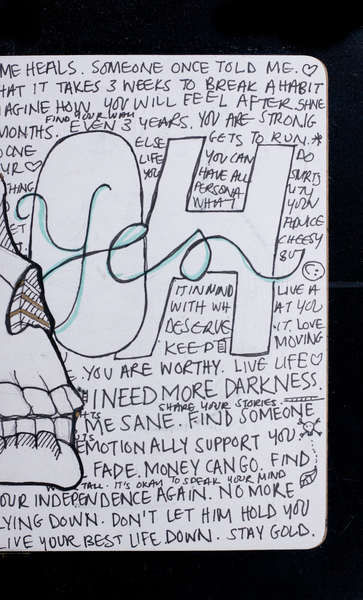 ME HEALS. SOMEONE ONCE TOLD ME.
HAT IT TAKES 3 WEEKS TO BREAK A HABIT
AGINE HOW YOU WILL FEEL AFTER SANE
FIND YOUR WAY
MONTHS. EVEN 3 YEARS. YOU ARE STRONG
ONE ELSE GETS TO RUN.
UR LIFE YOU CAN DO
THING YOU HAVE ALL
PERSONA
WHAT YOUR
ET ADVICE
CHEESY
BU
OH
yes
IT IN MIND LIVE A
WITH WH AT YOU
DESERVE IT. LOVE
KEEP MOVING
YOU ARE WORTHY. LIVE LIFE
I NEED MORE DARKNESS.
SHARE YOUR STORIES.
ME SANE. FIND SOMEONE
EMOTIONALLY SUPPORT YOU
FADE. MONEY CAN GO. FIND
TALL. IT'S OKAY TO SPEAK YOUR MIND
OUR INDEPENDENCE AGAIN. NO MORE
LYING DOWN. DON'T LET HIM HOLD YOU
LIVE YOUR BEST LIFE DOWN. STAY GOLD.